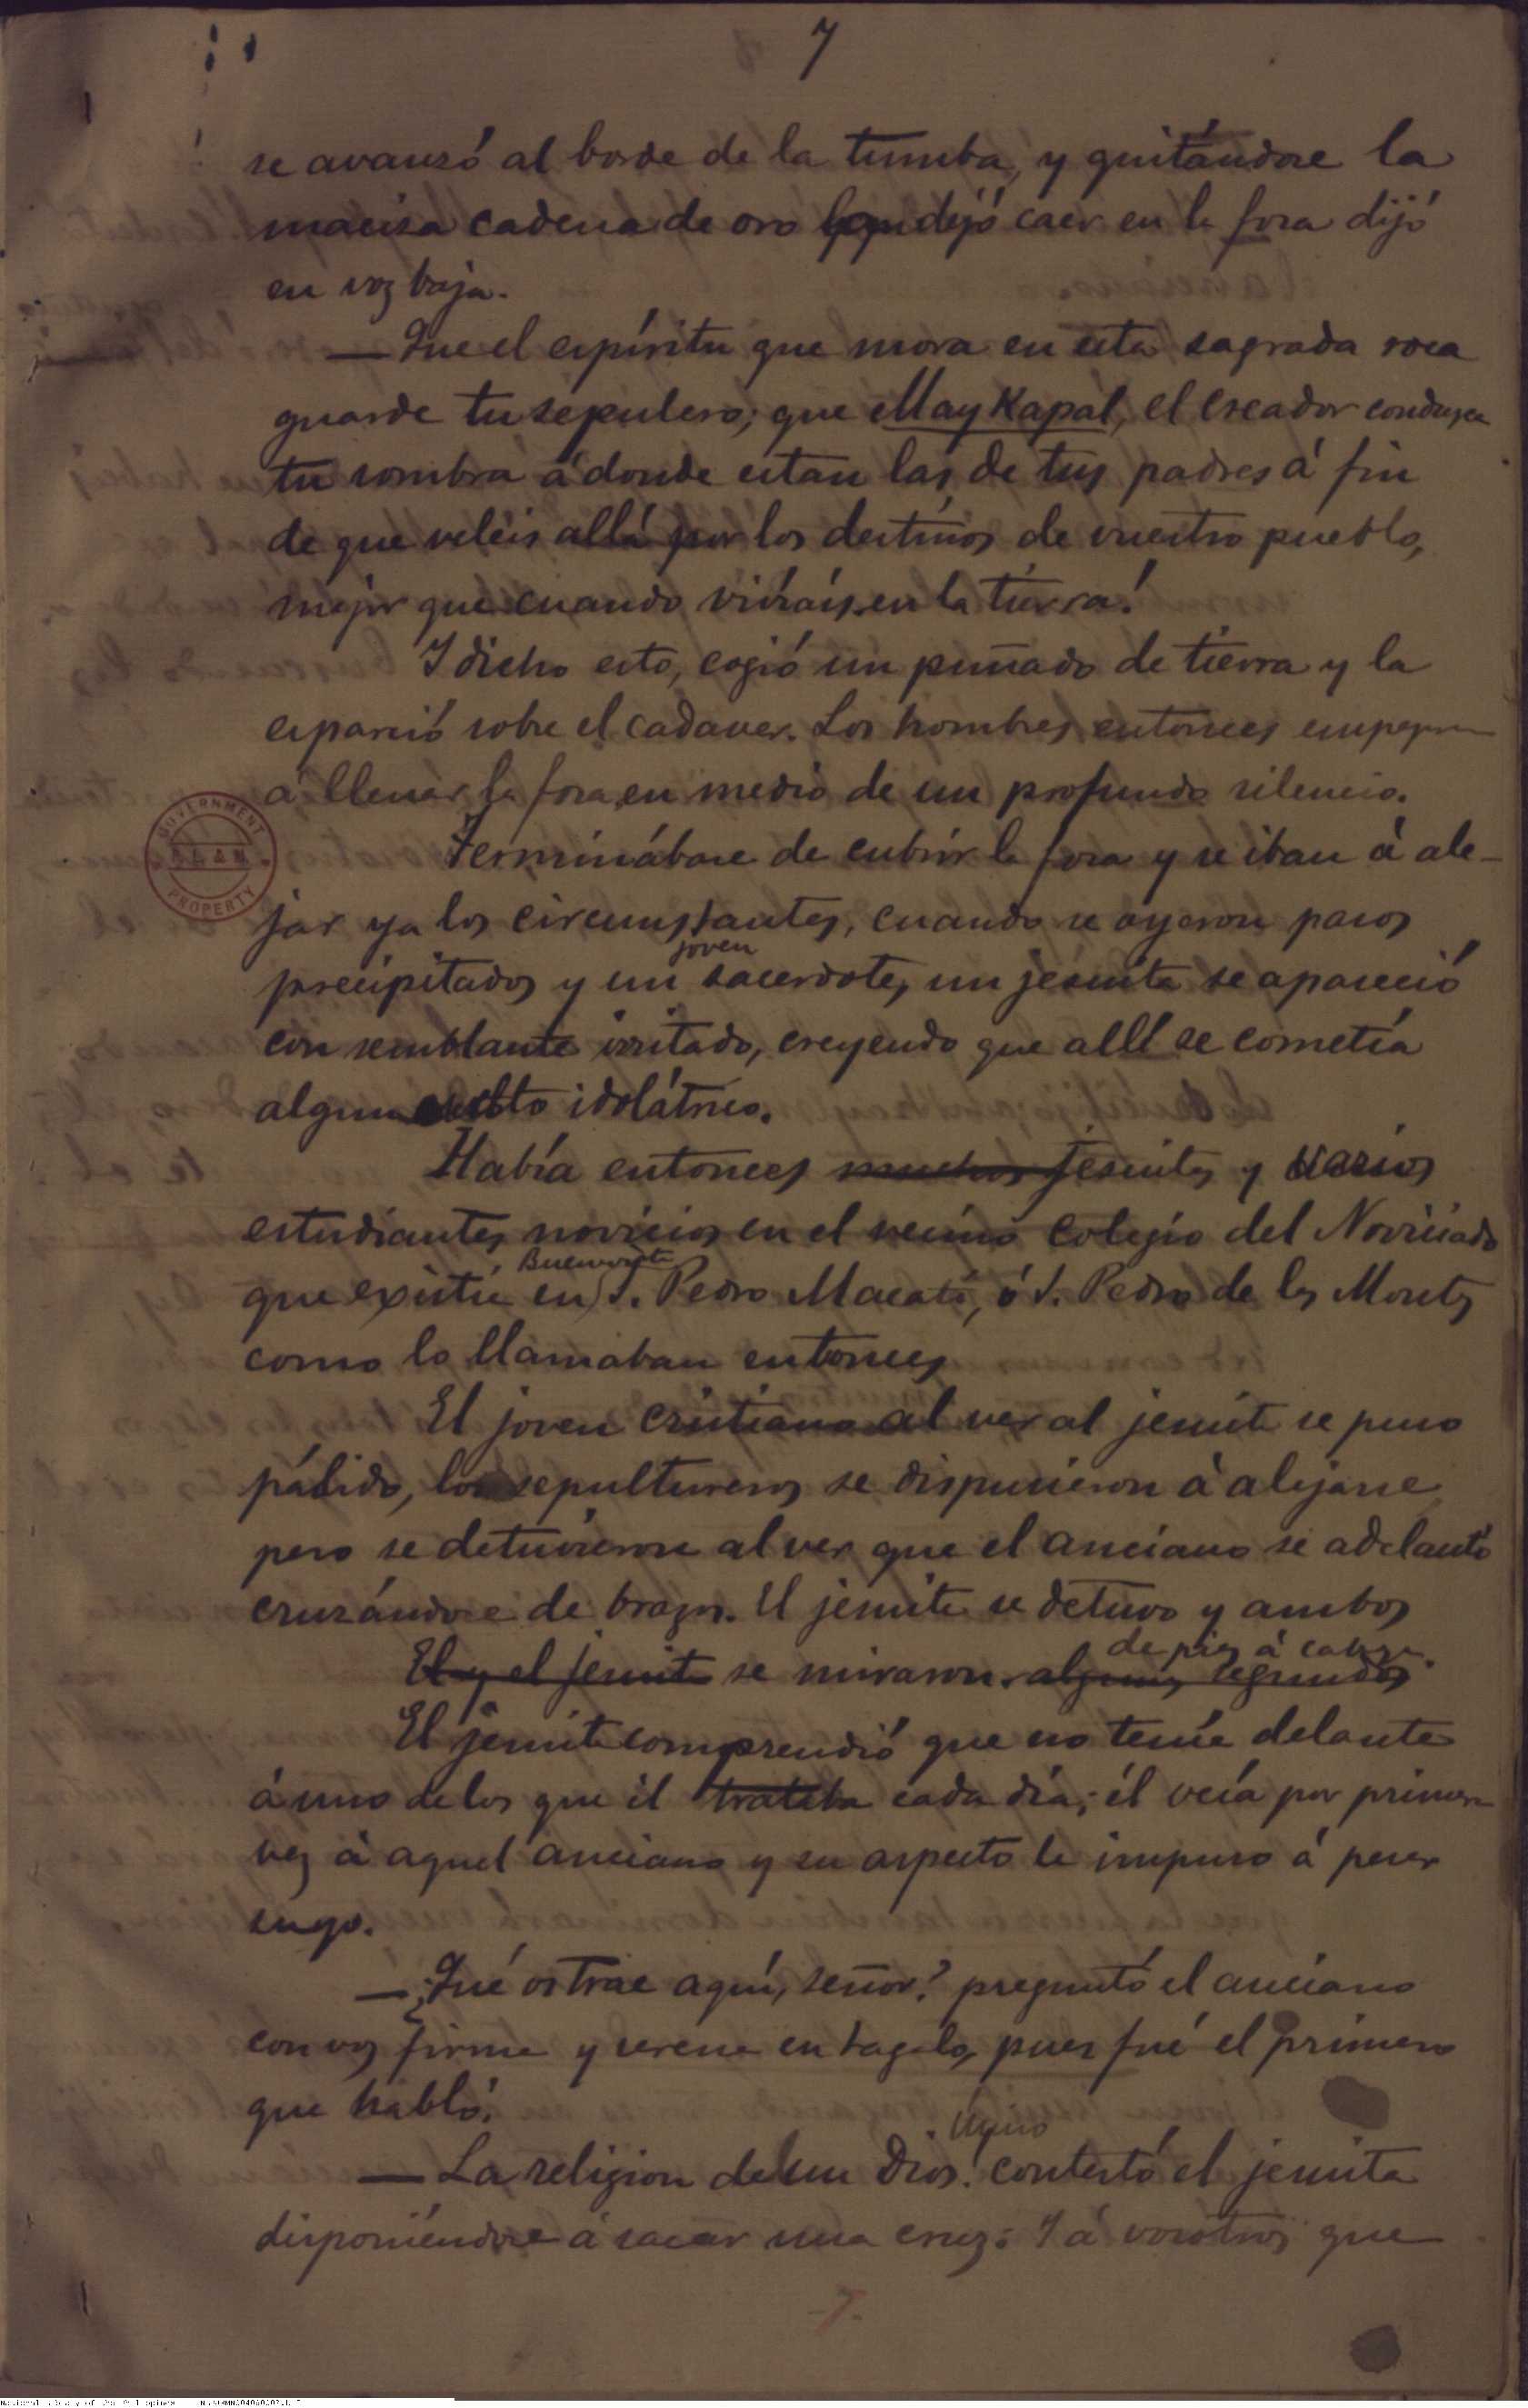 7
se avanzó al borde de la tumba, y quitándose la
maciza cadena de oro dejó caer en la fosa dijó
en voz baja.
— Que el espíritu que mora en esta sagrada roca
guarde tu sepulcro; que May Kapál, el creador conduzca
tu sombra á donde estan las de tus padres á fin
de que veléis allá por los destinos de vuestro pueblo,
mejor que cuando viváis en la tierra!
Y dicho esto, cogió un puñado de tierra y la
esparció sobre el cadaver. Los hombres entonces empezaron
á llenar la fosa en medio de un profundo silencio.
Terminábase de cubrir la fosa y se iban á ale-
jar ya los circumstantes, cuando se oyeron pasos
joven
precipitados y un sacerdote, un jesuita se apareció
con semblante irritado, creyendo que allí se cometía
algun culto idolátrico.
Había entonces muchos jesuitas y varios
estudiantes novicios en el vecino Colegio del Noviciado
Buenavista
que existía en S. Pedro Macati, ó S. Pedro de los Montes
como lo llamaban entonces
El joven cristiano al ver al jesuita se puso
pálido, los sepultureros se dispusieron á alejarse
pero se detuvieron al ver que el anciano se adelantó
cruzándose de brazos. El jesuita se detuvo y ambos
de pies á cabeza.
El y el jesuita se miraron algunos segundos
El jesuita comprendió que no tenía delante
á uno de los que él trataba cada día; él veía por primera
vez á aquel anciano y su aspecto le impuso á pesar
suyo.
— ¿Qué os trae aquí, señor? preguntó el anciano
con voz firme y serena en tagalo, pues fué el primero
que habló.
— La religion de un Dios! contestó el jesuita
disponiéndose á sacar una cruz: Y á vosotros que
7
GOVERNMENT
PROPERTY